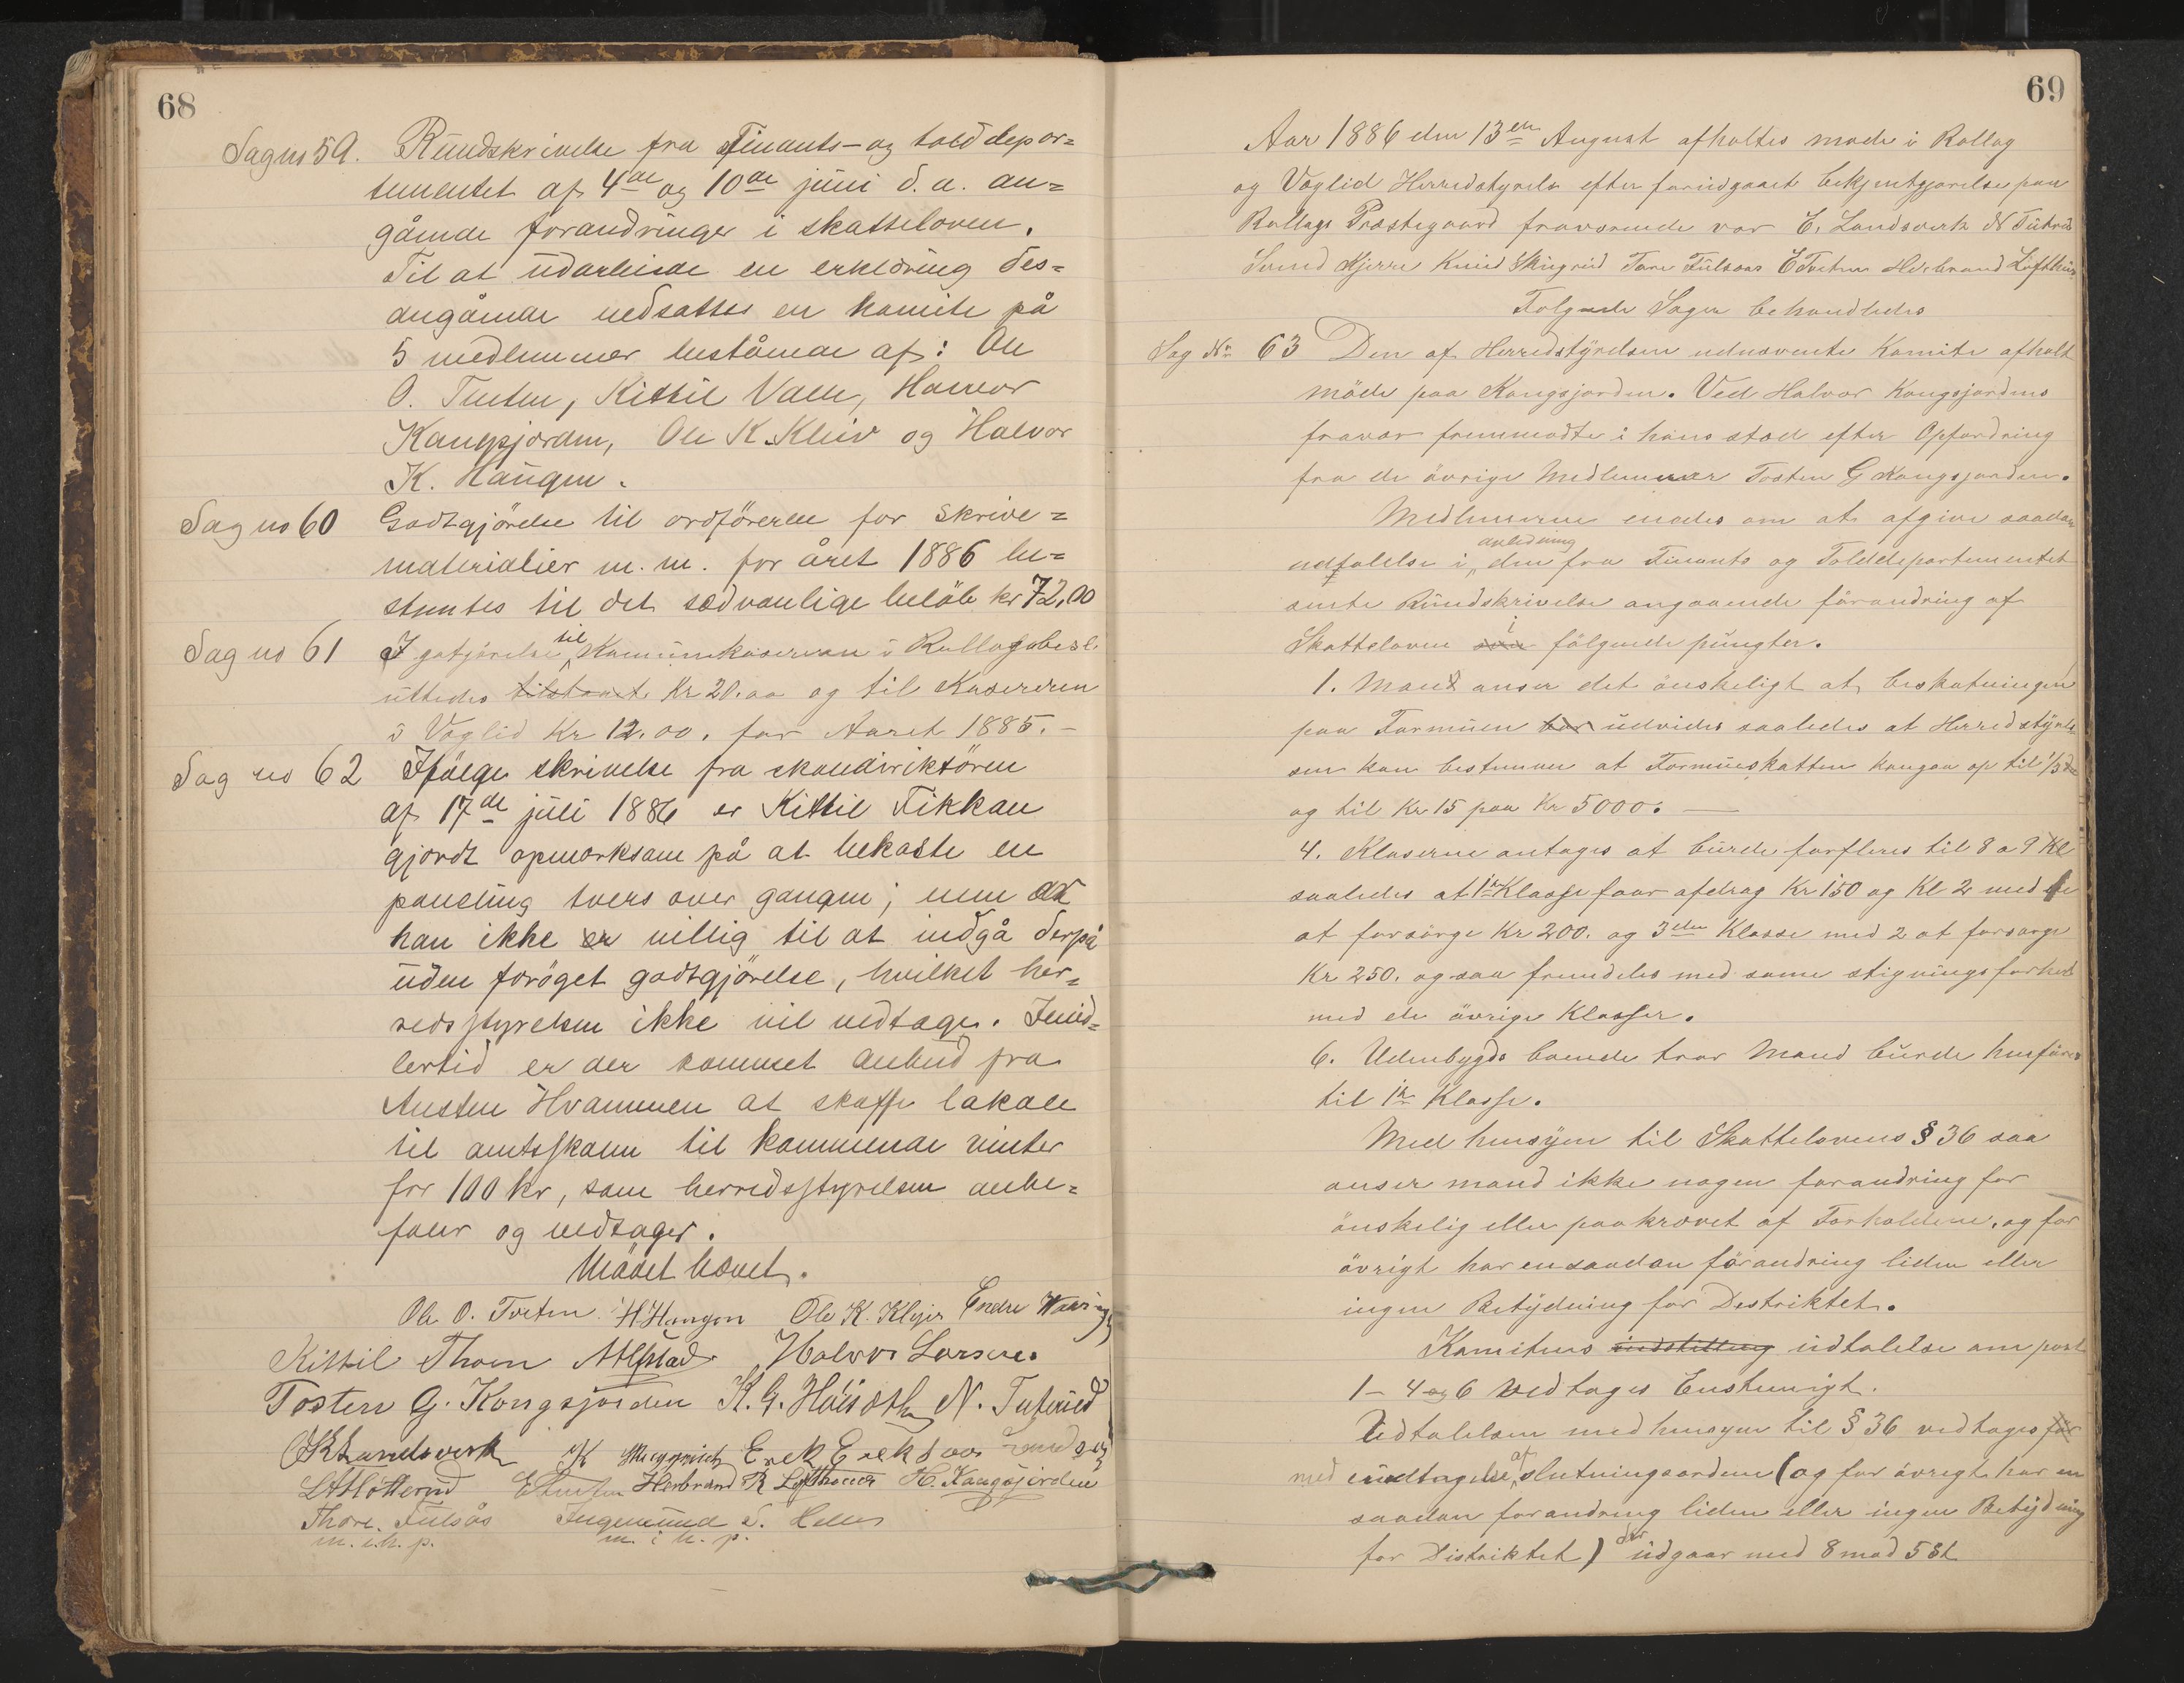 68
Sag no 59. Rundskrivelse fra Finants- og tolddepar=
tementet af 4de og 10de juni d. a. an=
gående forandringer i skatteloven.
Til at udarbeide en erklæring des=
angående nedsattes en komite på
5 medlemmer bestående af: Ole
O. Tveten, Kittil Valle, Halvor
Kongsjorden, Ole K. Kleiv og Halvor
K. Haugen.
Sag no 60 Godtgjörelse til ordföreren for skrive=
materialier m. m. for året 1886 be=
stemtes til det sædvanlige belöb kr 72,00
Sag no 61 I gotjörelse til Kommunekasereren i Rollag besl.
uttedes tilstaaet Kr 20.00 og til Kasereren
i Væglid Kr 12.00. for Aaret 1885. -
Sag no 62 Ifölge skrivelse fra skoledirektören
af 17de juli 1886 er Kittil Fikkan
gjordt opmærksom på at bekoste en
paneling tvers over gangen; men er
han ikke er villig til at indgå derpå
uden foröget godtgjörelse, hvilket her=
redsstyrelsen ikke vil vedtage. Imid=
lertid er der kommet anbud fra
Austen Hvammen at skaffe lokale
til amtsskolen til kommende vinter
for 100 kr, som herredsstyrelsen anbe=
faler og vedtager.
Mödet hævet.
Ole O. Tveten H Haugen Ole K. Klejv Endre
Kittil Thoen Halvor Larsen
Tosten G. Kongsjorden K. G. N. Tuterud
Landsverk K Erek Erekson
Herbrand R Lofthuus H. Kongsjorden
Thore Fulsås Ingemund S. Helle
m. i. h. p. m. i h. p.
69
Aar 1886 den 13en August afholtes møde i Rollag
og Væglid Herredstyrels efter forudgaaet bekjentgjørelse paa
Rollags Præstegaard fraværende var E. Landsverk N Tuterud
Svend Kjerre Knud Skugrud Tore Fulsaas E Tveten Herbrand Lofthus
Følgende Sager behandledes
Sag No 63 Den af Herredstyrelsen udnævnte Komite afholt
möde paa Kongsjorden. Ved Halvor Kongsjordens
fravær fremmødte i hans sted efter Opfordring
fra de övrige Medlemmer Tosten G Kongsjorden.
Medlemerne enedes om at afgive saadan
udtalelse i anledning den fra Finants og Tolddepartementet
sente Rundskrivelse angaaende förandring af
Skatteloven i fölgende pungter.
1. Mand anser det önskeligt at beskatningen
paa Formuen bør udvides saaledes at Herredstyrel
sen kan bestemme at Formueskatten kangaa op til 1/3 de
og til Kr 15 paa Kr 5000. —
4. Klaserne antages at burde forfleres til 8 a 9 Kl
saaledes at 1ste Klasse faar afdrag Kr 150 og Kl 2 med
at forsörge Kr 200. og 3die Klasse med 2 at forsørge
Kr 250. og saa fremdeles med same stigningsforhold
med de övrige Klasser.
6. Udenbygds boende tror Mand burde henföres
til 1ste Klasse.
Med hensyn til Skattelovens § 36 saa
anser mand ikke nogen forandring for
önskelig eller paakrævet af Forholdene, og for
övrigt har en saadan förandring liden eller
ingen Betydning for Destriktet.
Komiteens indstilling udtalelse om post
1 - 4 og 6 vedtages Enstemigt.
Udtalelsen med hensyn til § 36 vedtages for
med undtagelse af slutningsordene (og for övregt har en
saadan forandring liden eller ingen Betydning
for Distriktet) der udgaar med 8 mod 5 St